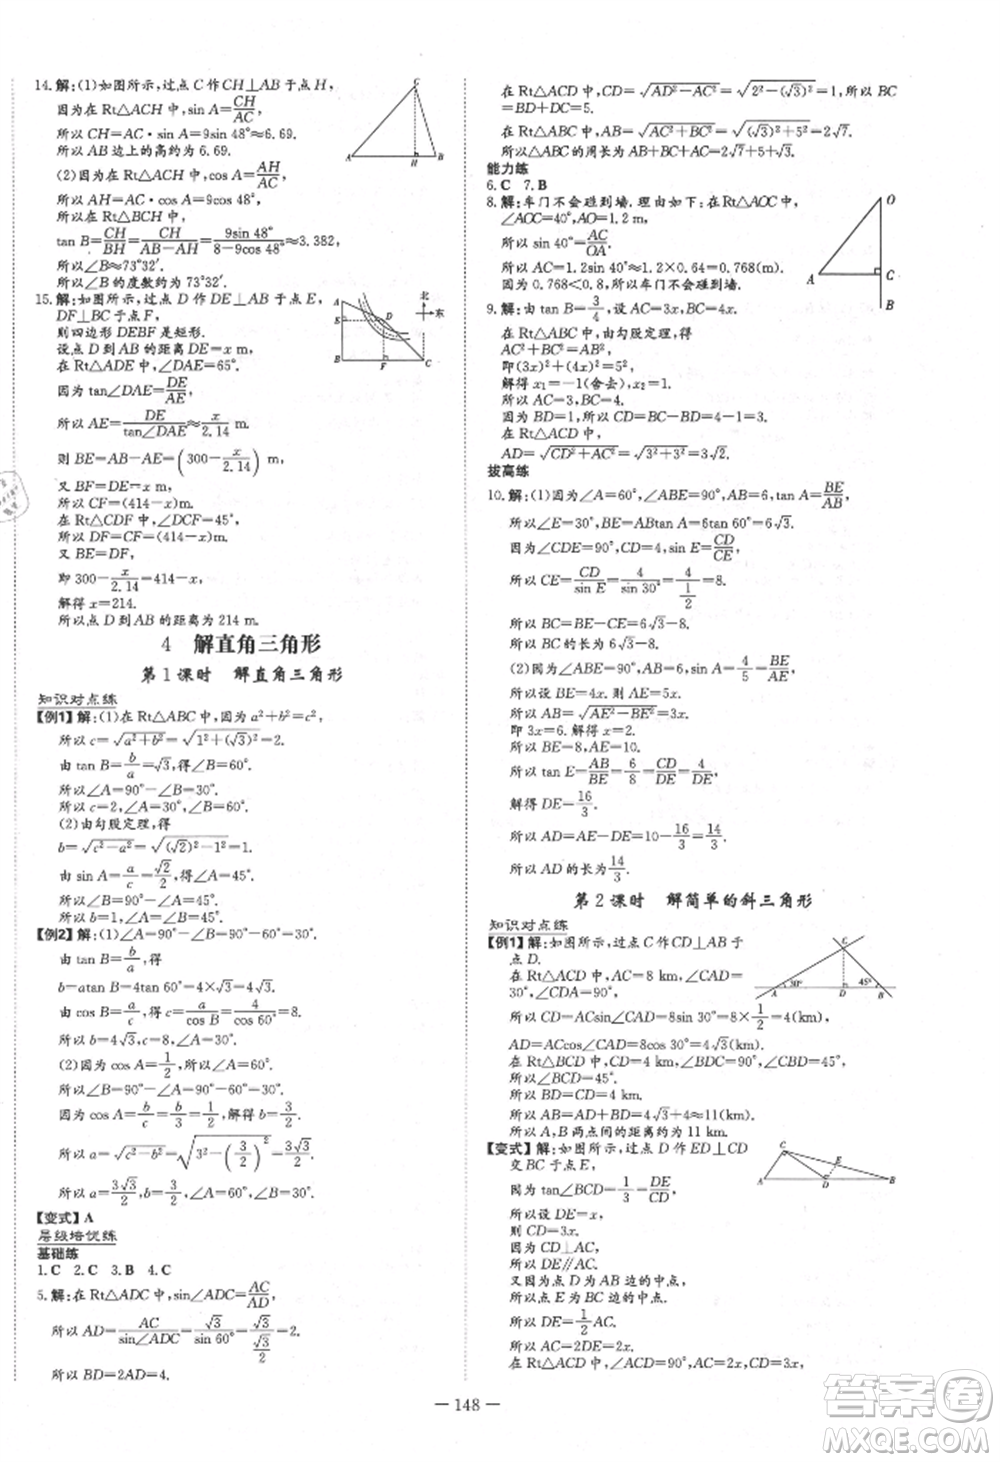 14. 解:(1)如图所示,过点 C 作 CH⊥AB 于点 H,
因为在 Rt△ACH 中,sin A=CH/AC,
所以 CH=AC·sin A=9sin 48°≈6.69.
所以 AB 边上的高约为 6.69.
(2)因为在 Rt△ACH 中,cos A=AH/AC,
所以 AH=AC·cos A=9cos 48°.
所以在 Rt△BCH 中,
tan B=CH/BH=CH/(AB-AH)=9sin 48°/(8-9cos 48°)≈3.382,
所以∠B≈73°32′.
所以∠B 的度数约为 73°32′.
15. 解:如图所示,过点 D 作 DE⊥AB 于点 E,
DF⊥BC 于点 F,
则四边形 DEBF 是矩形.
设点 D 到 AB 的距离 DE=x m,
在 Rt△ADE 中,∠DAE=65°.
因为 tan∠DAE=DE/AE,
所以 AE=DE/tan∠DAE≈x/2.14 m,
则 BE=AB-AE=(300-x/2.14) m,
又 BF=DE=x m,
所以 CF=(414-x)m.
在 Rt△CDF 中,∠DCF=45°,
所以 DF=CF=(414-x)m.
又 BE=DF,
即 300-x/2.14=414-x,
解得 x=214.
所以点 D 到 AB 的距离约为 214 m.
4 解直角三角形
第 1 课时 解直角三角形
知识对点练
【例1】解:(1)在 Rt△ABC 中,因为 a²+b²=c²,
所以 c=√(a²+b²)=√(1²+(√3)²)=2.
由 tan B=b/a=√3,得∠B=60°.
所以∠A=90°-∠B=30°.
所以 c=2,∠A=30°,∠B=60°.
(2)由勾股定理,得
b=√(c²-a²)=√((√2)²-1²)=1.
由 sin A=a/c=√2/2,得∠A=45°.
所以 b=1,∠A=45°,∠B=45°.
【例2】解:(1)∠A=90°-∠B=90°-60°=30°.
因为 tan B=b/a,
b=atan B=4tan 60°=4×√3=4√3.
因为 cos B=a/c,所以 c=a/cos B=4/cos 60°=8.
所以 b=4√3,c=8,∠A=30°.
(2)因为 cos A=1/2,所以∠A=60°.
所以∠B=90°-∠A=90°-60°=30°.
因为 cos A=b/c=b/3=1/2,解得 b=3/2.
所以 a=√(c²-b²)=√(3²-(3/2)²)=3√3/2.
所以 a=3√3/2,b=3/2,∠B=30°.
【变式】A
层级培优练
基础练
1. C 2. C 3. B 4. C
5. 解:在 Rt△ADC 中,sin∠ADC=AC/AD,
所以 AD=AC/sin∠ADC=√3/sin 60°=√3/(√3/2)=2.
所以 BD=2AD=4.
在 Rt△ADC 中,CD=√(AD²-AC²)=√(2²-(√3)²)=1,所以 BC
=BD+DC=5.
在 Rt△ABC 中,AB=√(AC²+BC²)=√((√3)²+5²)=2√7.
所以△ABC 的周长为 AB+BC+AC=2√7+5+√3.
能力练
6. C 7. B
8. 解:车门不会碰到墙.理由如下:在 Rt△AOC 中,
∠AOC=40°,AO=1.2 m,
所以 sin 40°=AC/OA.
所以 AC=1.2sin 40°≈1.2×0.64=0.768(m).
因为 0.768<0.8,所以车门不会碰到墙.
9. 解:由 tan B=3/4,设 AC=3x,BC=4x.
在 Rt△ABC 中,由勾股定理,得
AC²+BC²=AB²,
即(3x)²+(4x)²=5²,
解得 x₁=-1(舍去),x₂=1.
所以 AC=3,BC=4.
因为 BD=1,所以 CD=BC-BD=4-1=3.
在 Rt△ACD 中,
AD=√(CD²+AC²)=√(3²+3²)=3√2.
拔高练
10. 解:(1)因为∠A=60°,∠ABE=90°,AB=6,tan A=BE/AB,
所以∠E=30°,BE=ABtan A=6tan 60°=6√3.
因为∠CDE=90°,CD=4,sin E=CD/CE,
所以 CE=CD/sin E=4/sin 30°=4/(1/2)=8.
所以 BC=BE-CE=6√3-8.
所以 BC 的长为 6√3-8.
(2)因为∠ABE=90°,sin A=4/5=BE/AE,
所以设 BE=4x.则 AE=5x,
所以 AB=√(AE²-BE²)=3x.
即 3x=6.所以 x=2.
所以 BE=8,AE=10.
所以 tan E=AB/BE=6/8=CD/DE=4/DE.
解得 DE=16/3.
所以 AD=AE-DE=10-16/3=14/3.
所以 AD 的长为14/3.
第 2 课时 解简单的斜三角形
知识对点练
【例1】解:如图所示,过点 C 作 CD⊥AB 于
点 D.
在 Rt△ACD 中,AC=8 km,∠CAD=30°,
∠CDA=90°,
所以 CD=ACsin∠CAD=8sin 30°=8×1/2=4(km),
AD=ACcos∠CAD=8cos 30°=4√3(km).
在 Rt△BCD 中,CD=4 km,∠BDC=90°,∠CBD=45°,
所以∠BCD=45°.
所以 BD=CD=4 km.
所以 AB=AD+BD=4√3+4≈11(km).
所以 A,B 两点间的距离约为 11 km.
【变式】解:如图所示,过点 D 作 ED⊥CD
交 BC 于点 E,
因为 tan∠BCD=1/3=DE/CD,
所以设 DE=x,
则 CD=3x.
因为 CD⊥AC,
所以 DE∥AC.
又因为点 D 为 AB 边的中点,
所以点 E 为 BC 边的中点.
所以 DE=1/2AC.
所以 AC=2DE=2x.
在 Rt△ACD 中,∠ACD=90°,AC=2x,CD=3x,
— 148 —
答案圈
MXQE.COM